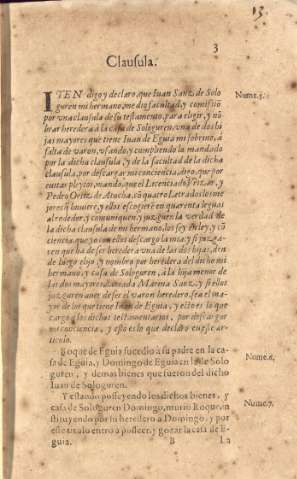 13.
3
Clausula.
ITEN digo y declaro, que Iuan Sanz, de Solo
guren mi hermano, me dio facultad, y comissiō
por vna clausula de su testamento, para elegir, y nō
brar heredera à la casa de Sologuren, vna de dos hi
jas mayores que tiene Iuan de Eguia mi sobrino, à
falta de varon, vsando, y cumpliendo lo mandado
por la dicha clausula, y de la facultad de la dicha
clausula, por descargar mi conciencia, digo, que por
euitar pleytos, mando, que el Licenciado Yrizar, y
Pedro Ortiz de Atocha, cō quatro Letrados los me
jores q̄ huuiere, y ellos escogerē en quarenta leguas
alrededor, y comuniquen, y juzguen la verdad de
la dicha clausula de mi hermano, los sey, de ley, y cō
ciencia, que yo con ellos descargo la mia, y si juzga-
ren que ha de ser heredera vna de las dos hijas, den
de luego elijo, y nombro por heredera del dicho mi
hermano, y casa de Sologuren, à la hija menor de
las dos mayores, llamada Marina Sanz, y si ellos
juzgaren auer de ser el varon heredero, sea el ma-
yor de los que tiene Iuan de Eguia, y esto es lo que
cargo à los dichos testamentarios, por descargar
mi conciencia, y esto es lo que declaro en este ar-
ticulo.
Roque de Eguia sucedio à su padre en la ca-
sa de Eguia, y Domingo de Eguia en la de Solo
guren, y demas bienes que fueron del dicho
Iuan de Sologuren.
Y estando posseyendo los dichos bienes, y
casa de Sologuren Domingo, murio Roque in
stituyendo por su heredero à Domingo, y por
este titulo entro à posseer, y gozar la casa de E-
guia.
B
La
Nume.5.
Nume.6.
Nume.7.